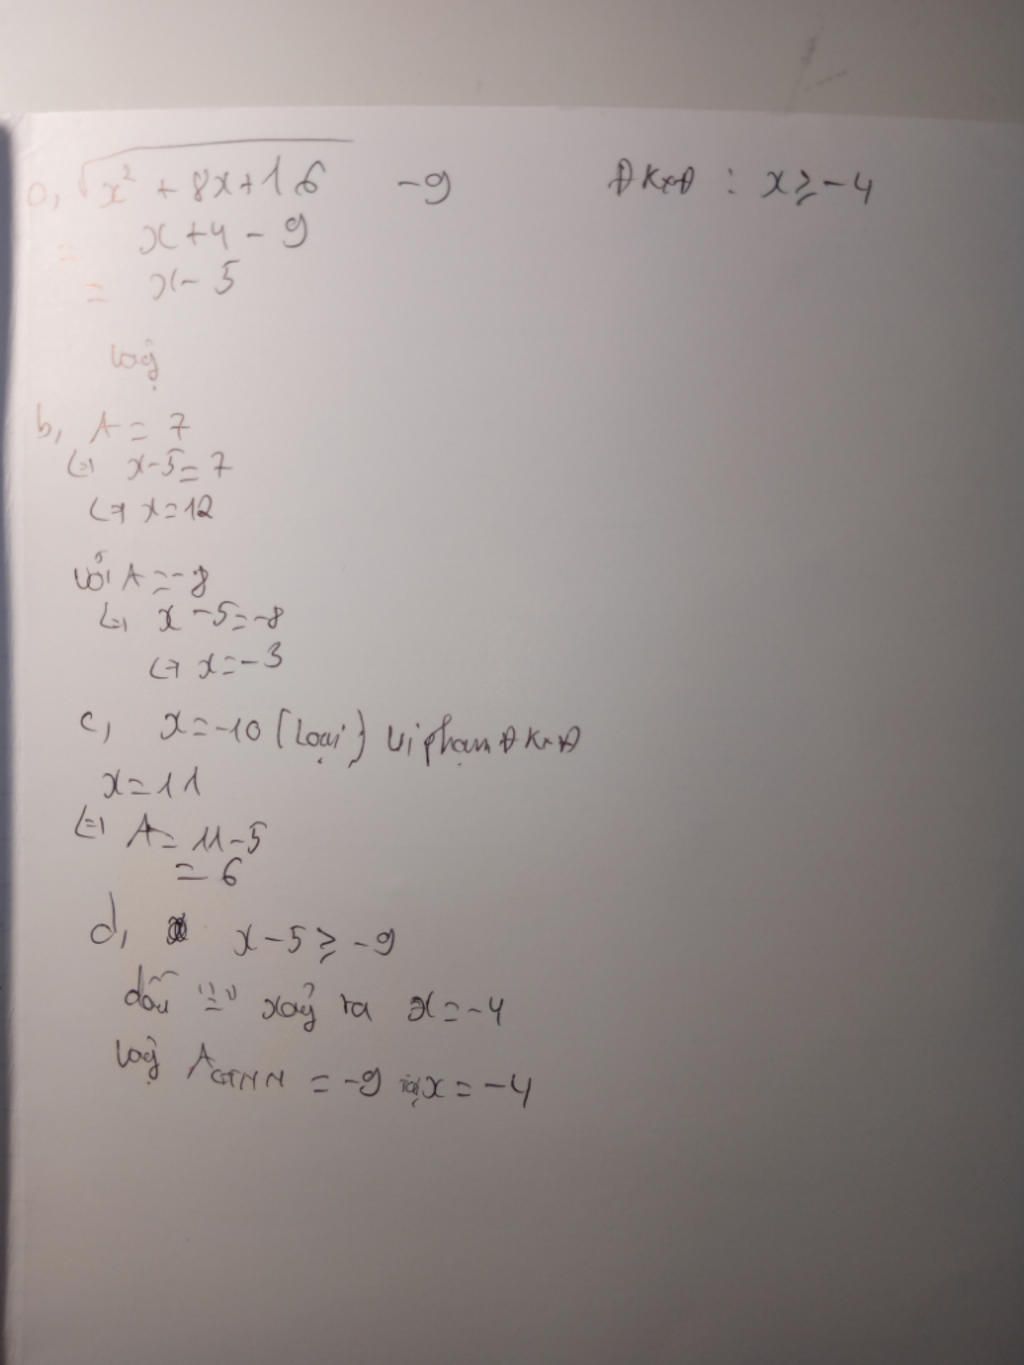 a, √x² + 8x + 16 - 9 ĐKXĐ : x ≥ -4
= x + 4 - 9
= x - 5
Vậy
b, A = 7
<=> x - 5 = 7
<=> x = 12
với A = -8
<=> x - 5 = -8
<=> x = -3
c, x = -10 (loại) vi phạm ĐKXĐ
x = 11
<=> A = 11 - 5
= 6
d, x - 5 ≥ -9
dấu "=" xảy ra x = -4
Vậy A GTNN = -9 tại x = -4